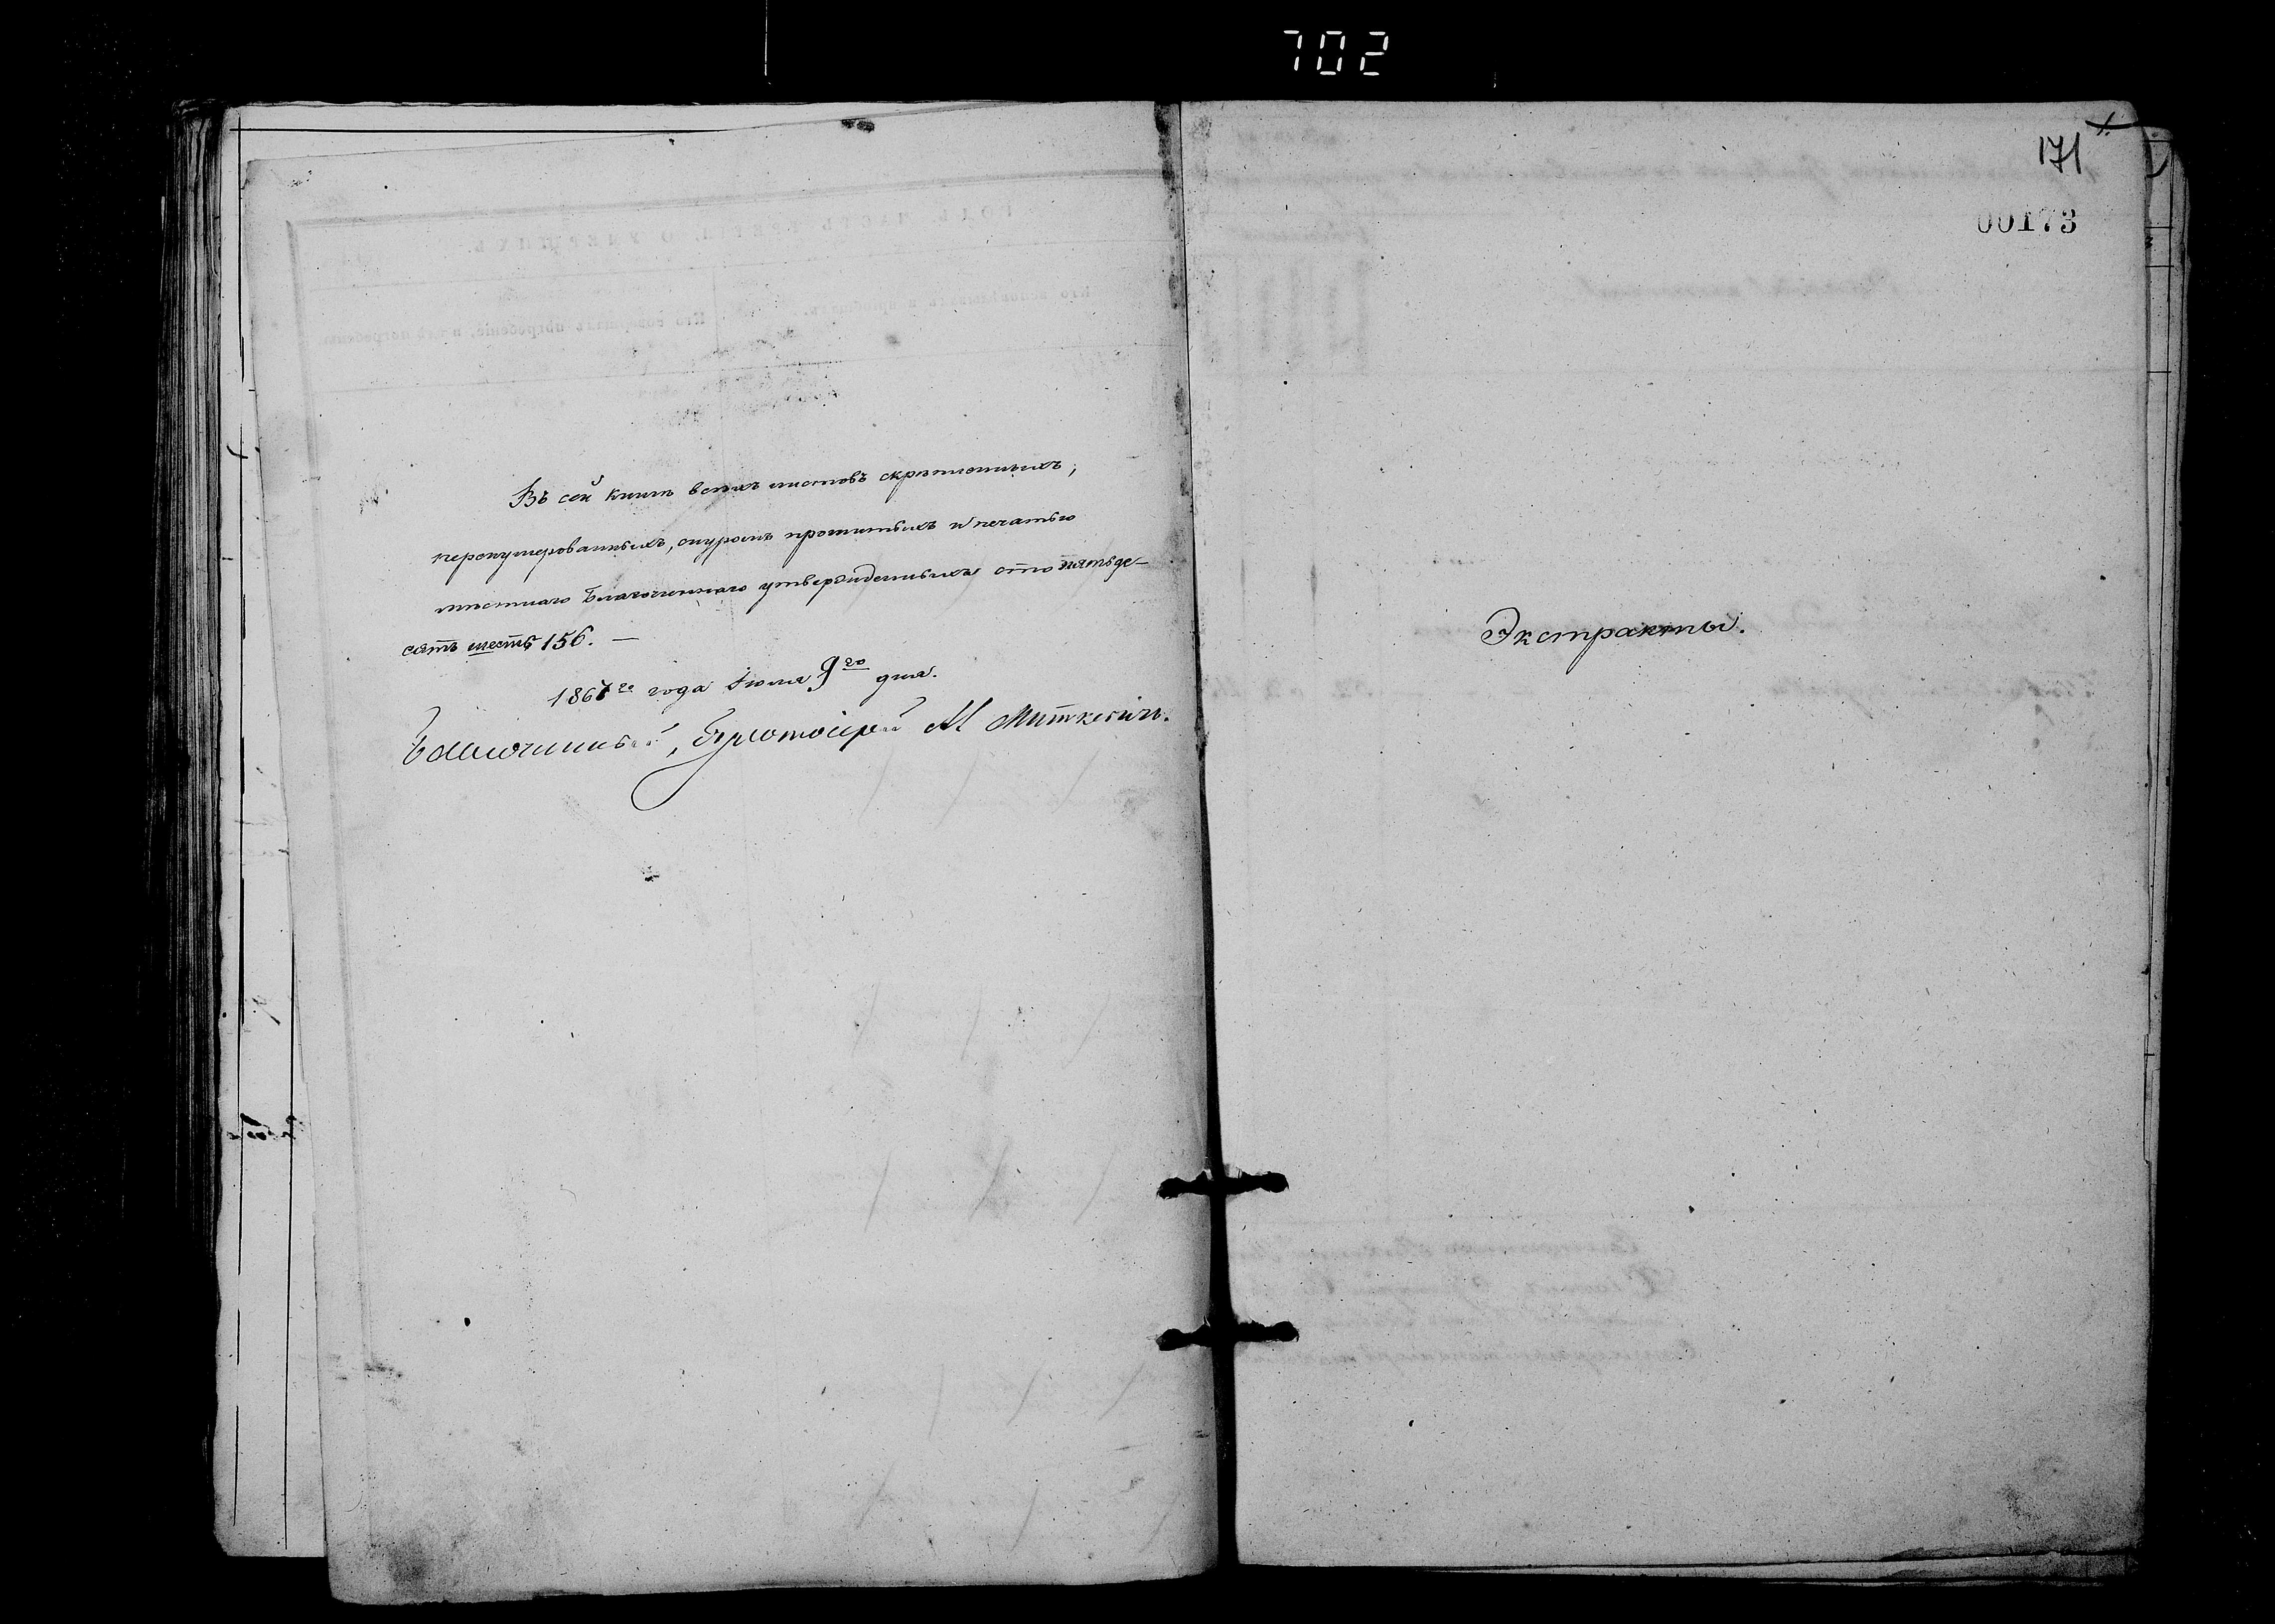 702
Въ сей книгѣ всѣхъ листовъ скрѣпленныхъ,
перенумерованныхъ, шнуромъ прошитыхъ и печатью
мѣстнаго Благочиннаго утвержденныхъ сто пятьде-
сятъ шесть 156. —
1867го года Іюля 9го дня.
Благочинный, Протоіерей М Миткевичъ.
171
00173
Экстракты.